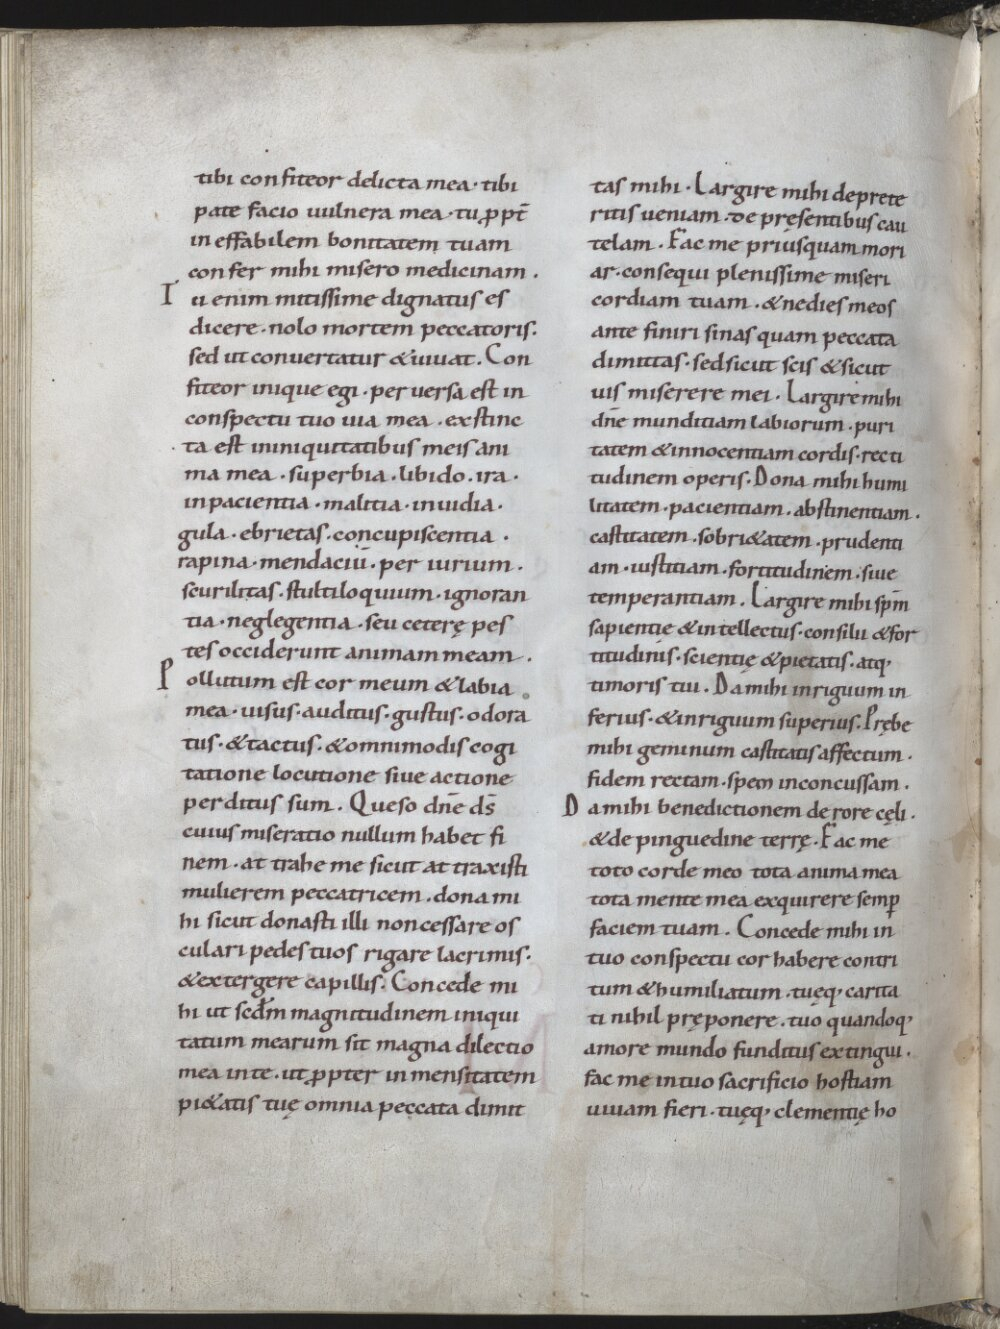 tibi confiteor delicta mea · tibi
pate facio uulnera mea · tu ꝓpt̄
in effabilem bonitatem tuam
con fer mihi misero medicinam ·
Tu enim mitissime dignatus es
dicere · nolo mortem peccatoris ·
sed ut conuertatur & uiuat · Con
fiteor inique egi · per uersa est in
conspectu tuo uia mea · exstinc
ta est in iniquitatibus meis ani
ma mea · superbia · libido · ira ·
inpacientia · malitia · inuidia ·
gula · ebrietas · concupiscentia ·
rapina · mendaciū · per iurium ·
scurilitas · stultiloquium · ignoran
tia · neglegentia · seu ceterę pes
tes occiderunt animam meam ·
Pollutum est cor meum & labia
mea · uisus · auditus · gustus · odora
tus · & tactus · & omnimodis cogi
tatione locutione siue actione
perditus sum · Queso dn̄e ds̄
cuius miseratio nullum habet fi
nem · at trahe me sicut at traxisti
mulierem peccatricem · dona mi
hi sicut donasti illi non cessare os
culari pedes tuos rigare lacrimis ·
& extergere capillis · Concede mi
hi ut scdm̄ magnitudinem iniqui
tatum mearum sit magna dilectio
mea in te · ut ꝓpter in mensitatem
pi&atis tuę omnia peccata dimit
tas mihi · Largire mihi de prete
ritis ueniam · de pręsentibus cau
telam · Fac me priusquam mori
ar · consequi plenissime miseri
cordiam tuam · & ne dies meos
ante finiri sinas quam peccata
dimittas · sed sicut scis & sicut
uis miserere mei · Largire mihi
dn̄e munditiam labiorum · puri
tatem & innocentiam cordis · recti
tudinem operis · Dona mihi humi
litatem · pacientiam · abstinentiam ·
castitatem · sobri&atem · prudenti
am · iustitiam · fortitudinem · siue
temperantiam · Largire mihi sp̄m
sapientię & intellectus · consilii & for
titudinis · scientię & pietatis · atq·
timoris tui · Da mihi inriguum in
ferius · & inriguum superius · Prębe
mihi geminum castitatis affectum ·
fidem rectam · spem inconcussam ·
Da mihi benedictionem de rore cęli ·
& de pinguedine terrę · Fac me
toto corde meo tota anima mea
tota mente mea exquirere semꝑ
faciem tuam · Concede mihi in
tuo conspectu cor habere contri
tum & humiliatum · tuęq· carita
ti nihil pręponere · tuo quandoq·
amore mundo funditus extingui ·
fac me in tuo sacrificio hostiam
uiuam fieri · tuęq· clementię ho